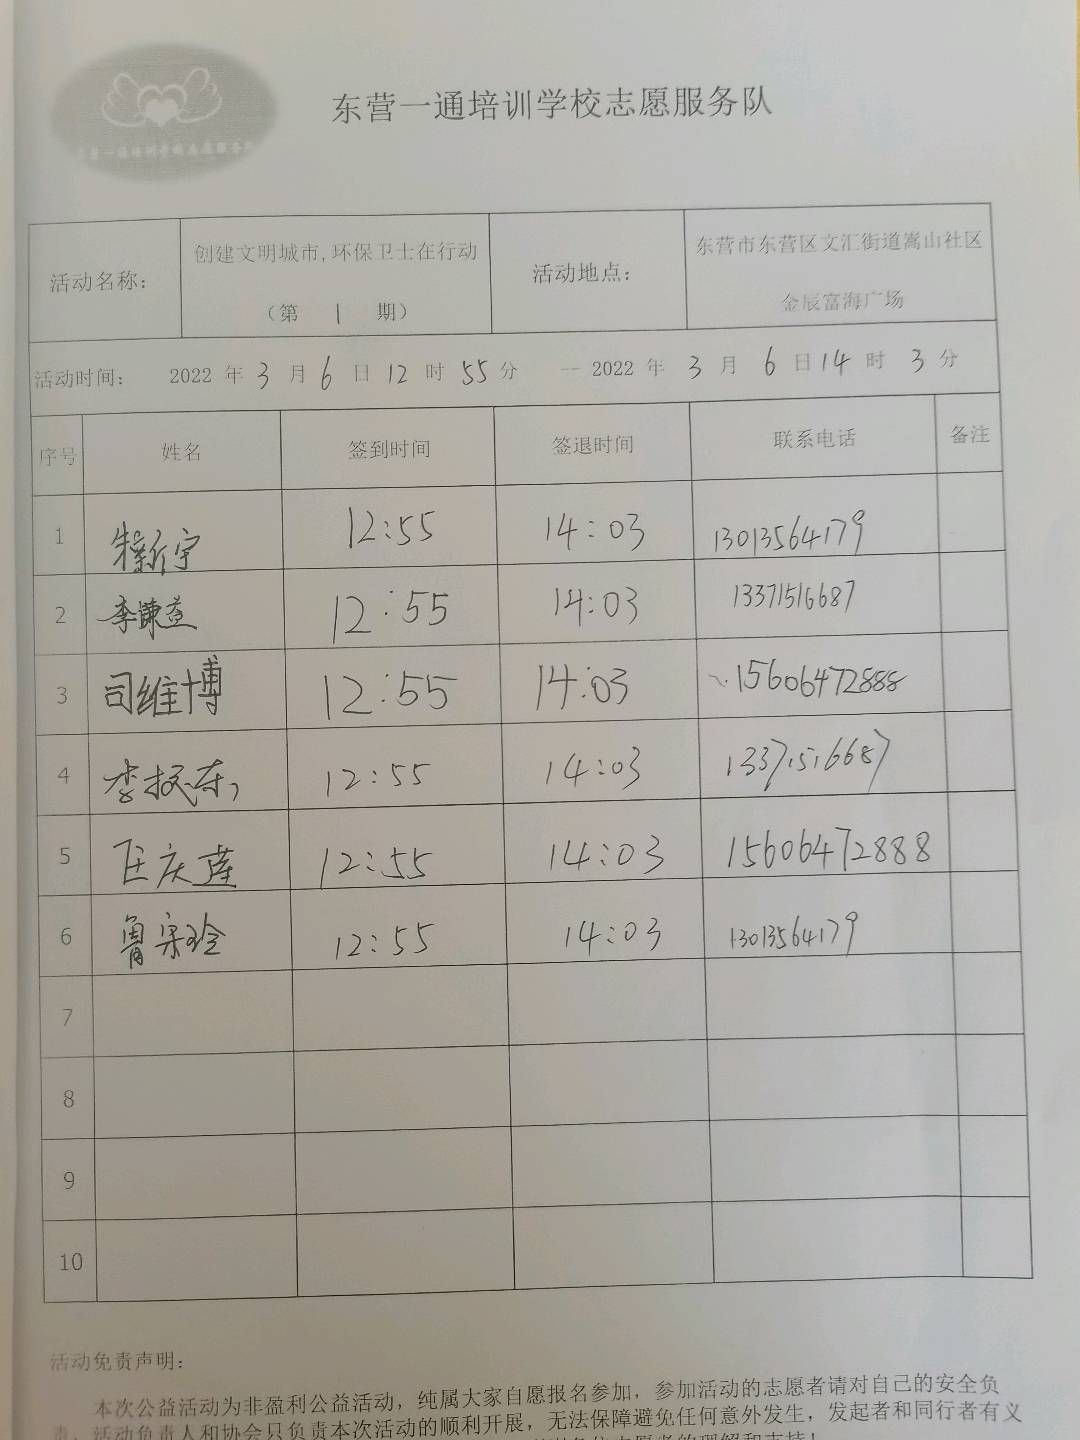 东营一通培训学校志愿服务队
活动名称：
创建文明城市,环保卫士在行动
（第 1 期）
活动地点：
东营市东营区文汇街道嵩山社区
金辰富海广场
活动时间： 2022 年 3 月 6 日 12 时 55 分 — 2022 年 3 月 6 日 14 时 3 分
序号 姓名 签到时间 签退时间 联系电话 备注
1 新宇 12:55 14:03 13013564179
2 李谦益 12:55 14:03 13371516687
3 司维博 12:55 14:03 15606472888
4 李振东 12:55 14:03 13371516687
5 匡庆莲 12:55 14:03 15606472888
6 鲁宋玲 12:55 14:03 13013564179
7
8
9
10
活动免责声明：
本次公益活动为非盈利公益活动，纯属大家自愿报名参加，参加活动的志愿者请对自己的安全负
责，活动负责人和协会只负责本次活动的顺利开展，无法保障避免任何意外发生，发起者和同行者有义